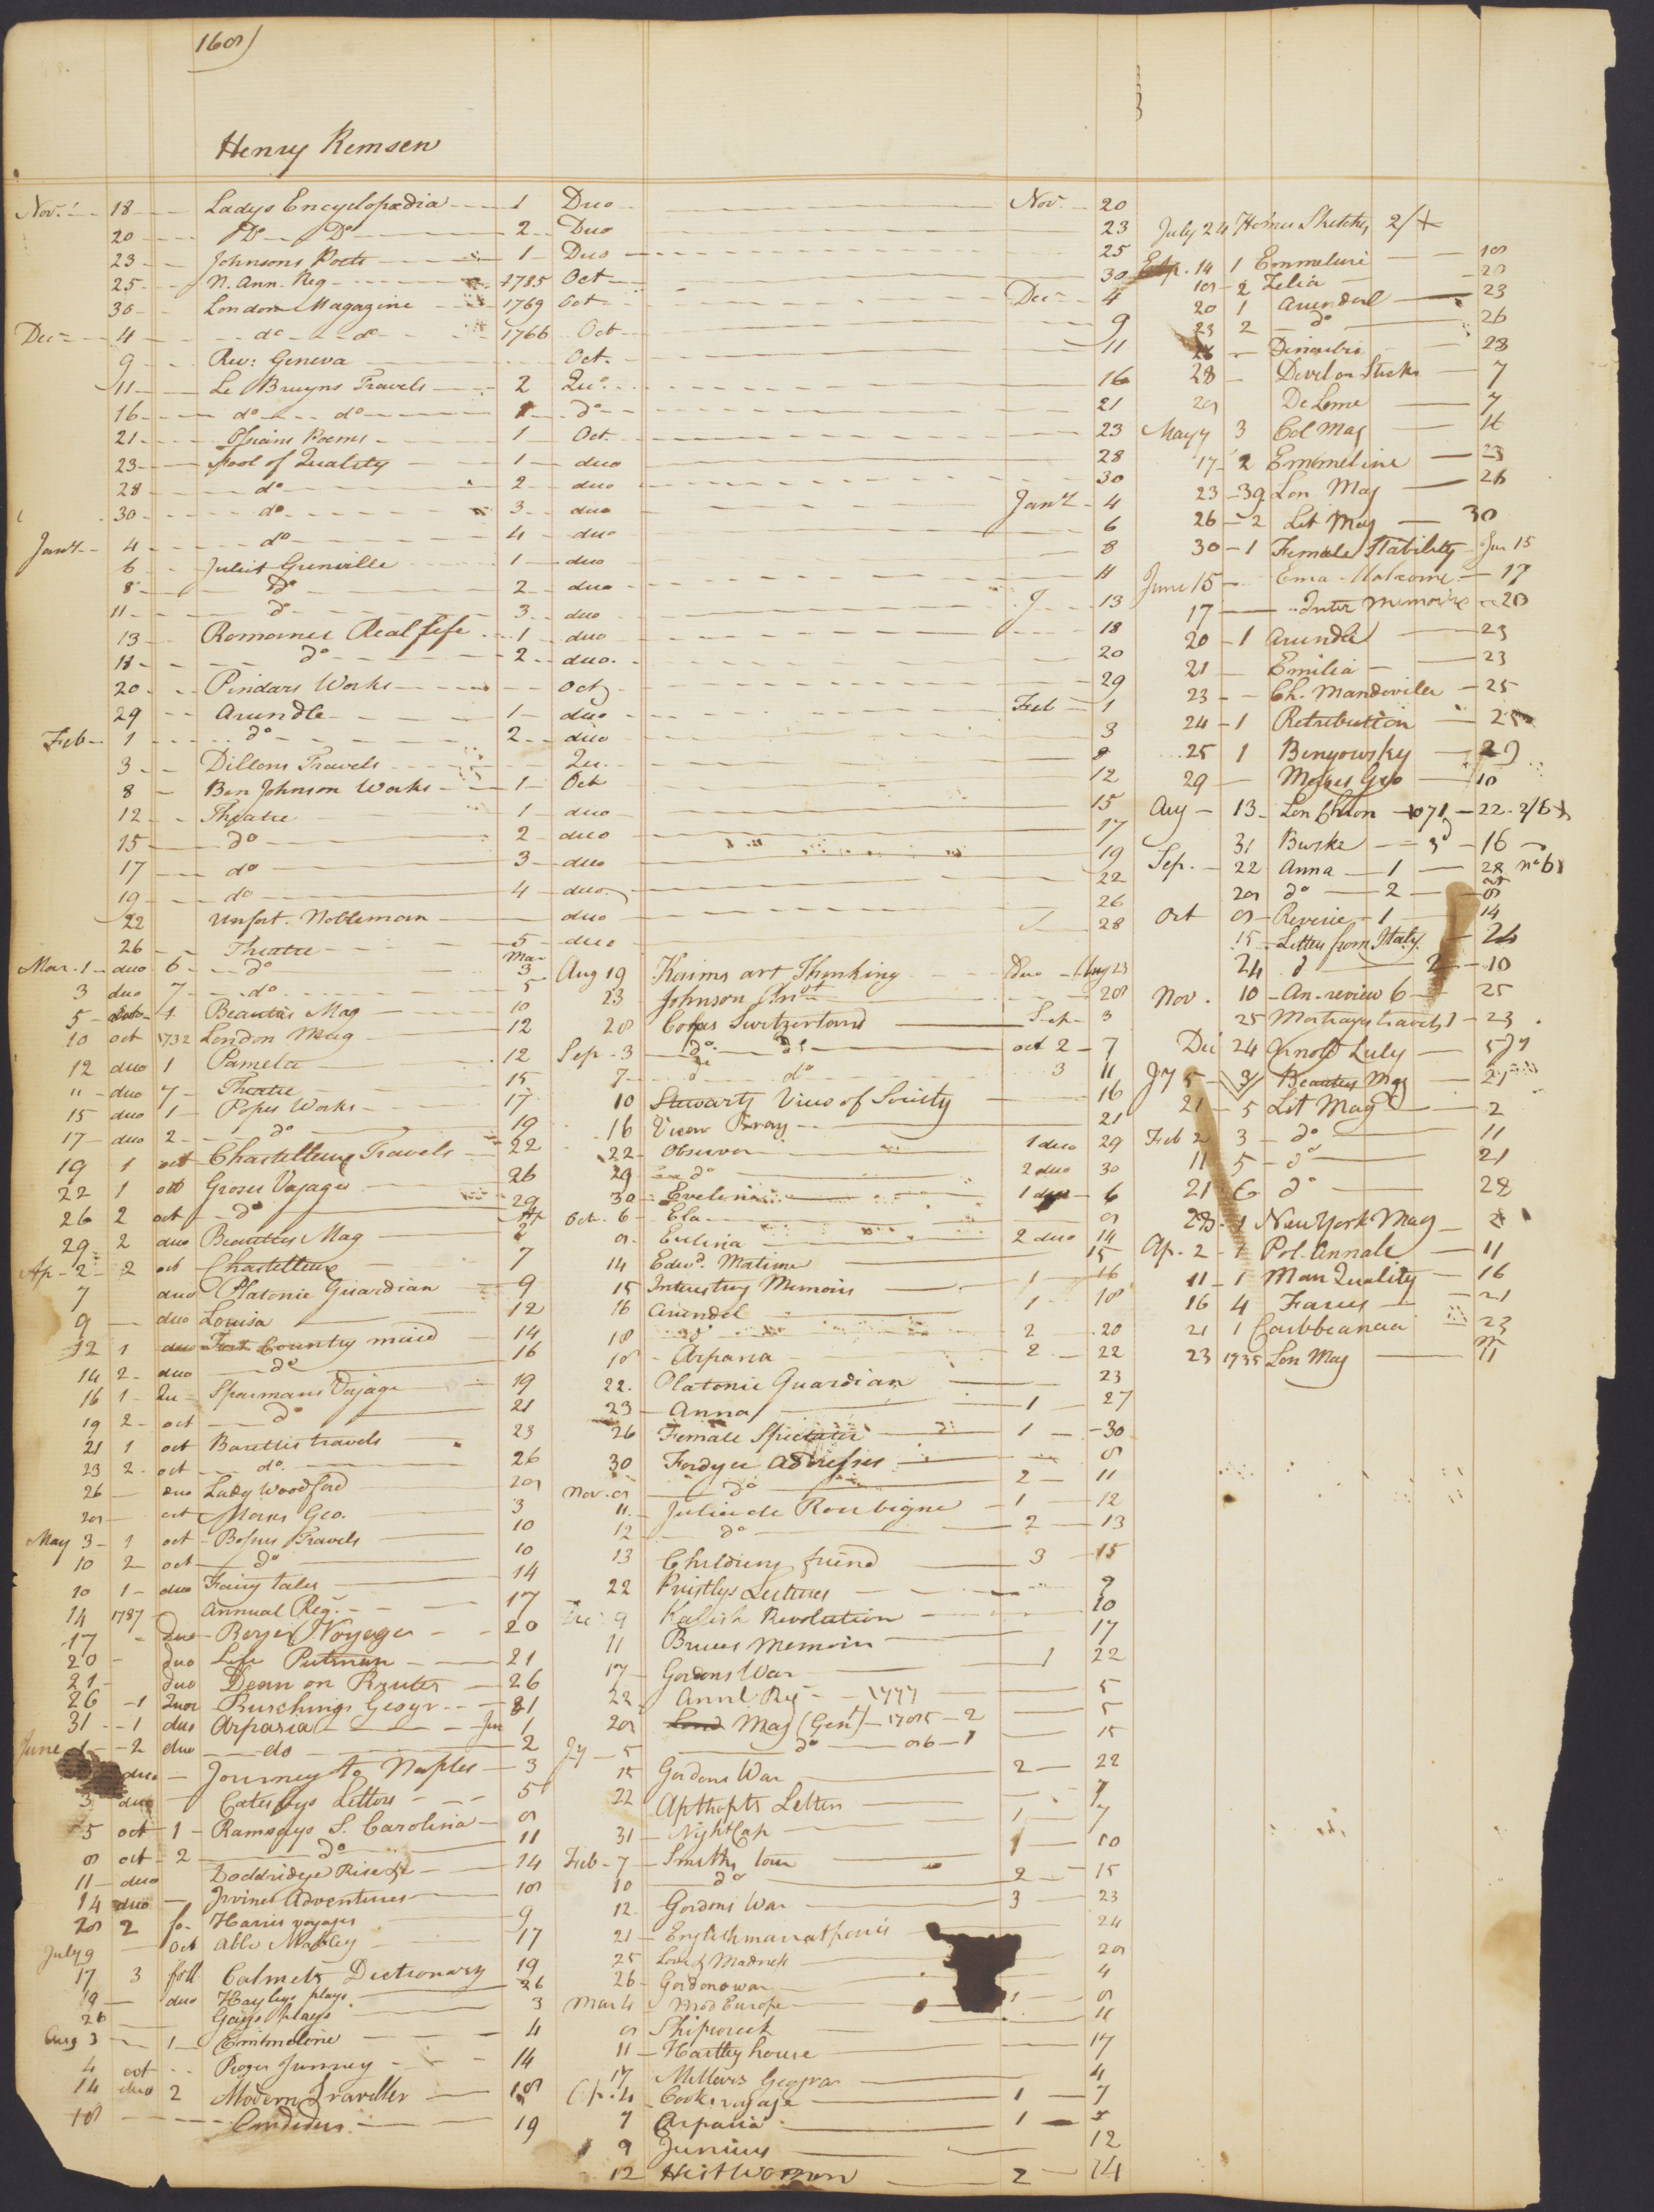 168)
Henry Remsen
Nov. 18 Ladys Encyclopædia 1 Duo Nov. 20
20 Do Do 2 Duo 23
23 Johnsons Poets 1 Duo 25
25 N. Ann. Reg 1785 Oct 30
30 London Magazine 1769 Oct Dec 4
Dec 4 do do 1766 Oct 9
9 Rev: Geneva Oct. 11
11 Le Bruyns Travels 2 Qu. 16
16 do do 1 do 21
21 Ossians Poems 1 Oct. 23
23 Fool of Quality 1 duo 28
28 do 2 duo 30
30 do 3 duo Jany 4
Jany 4 do 4 duo 6
6 Juliet Grenville 1 duo 8
8 Do 2 duo 11
11 do 3 duo 13
13 Romance Real Life 1 duo 18
18 do 2 duo. 20
20 Pindars Works Oct 29
29 Arundle 1 duo Feb 1
Feb 1 do 2 duo 3
3 Dillons Travels Qu. 8
8 Ben Johnson Works 1 Oct 12
12 Theatre 1 duo 15
15 do 2 duo 17
17 do 3 duo 19
19 do 4 duo. 22
22 Unfort. Nobleman duo 26
26 Theatre 5 duo 28
Mar. 1 duo 6 do Mar 3
3 duo 7 do 5
5 1 Beauties Mag 10
10 oct 1732 London Mag 12
12 duo 1 Pamela 12
" duo 7 Theatre 15
15 duo 1 Popes Works 17
17 duo 2 do 19
19 1 oct Chastelleux Travels 22
22 1 oct Groses Voyages 26
26 2 oct do 29
29 2 duo Beauties Mag Ap 2
Ap 2 2 oct Chastelleux 7
7 duo Platonic Guardian 9
9 duo Louisa 12
12 1 duo Fort. Country maid 14
14 2 duo do 16
16 1 Qu Sparmans Voyage 19
19 2 oct do 21
21 1 oct Barettis travels 23
23 2 oct do. 26
26 duo Lady Woodford 28
28 oct Morses Geo. 3
May 3 1 oct Bossus Travels 10
10 2 oct do 10
10 1 duo Fairy tales 14
14 1787 Annual Reg. 17
17 duo Voyages 20
20 duo Life Putnam 21
21 duo Dean on Routes 26
26 1 Buschings Geogr 31
31 1 duo Arpasia Jun 1
June 1 2 duo do 2
duo Journey to Naples 3
3 duo Catesbys Letters 5
5 oct 1 Ramsays S. Carolina 8
8 oct 2 do 11
11 duo Doddridge Rise &c 14
14 duo Irvines Adventures 18
28 2 fo Harris voyages 9
July 9 Oct Abbe Mabley 17
17 3 foll Calmets Dictionary 19
19 duo Hayleys plays. 26
26 Gays plays 3
Aug 3 1 Emmeline 4
4 oct Journey 14
14 duo 2 Modern Traveller 18
18 Candidus 19
Aug 19 Kaims art Thinking Duo Aug 23
23 Johnson 28
28 Coxes Switzerland Sep 3
Sep 3 do do oct 2 7
7 do do 3 11
10 Stewarts View of Society 16
16 View Bray 21
22 Observer 1 duo 29
29 do 2 duo 30
30 Evelina 1 duo 6
Oct. 6 Ela 8
8 Evelina 2 duo 14
14 Edwd. Mortimer 15
15 Interesting Memoirs 1 16
16 Arundel 1 18
18 do 2 20
18 Arpasia 2 22
22. Platonic Guardian 23
23 Anna 1 27
26 Female Spectator 1 30
30 Fordyce Addresses 8
Nov. 8 do 2 11
11. Julia de Roubigne 1 12
12 do 2 13
13 Childrens friend 3 15
22 Priestlys Lectures 9
Dec 9 Revolution 10
11 Bruces Memoirs 17
17 Gordons War 1 22
22 Annl Reg 1777 5
28 Lond Mag (Gent) 1785 2 5
Jy 5 do 86 1 15
15 Gordons War 2 22
22 Apthorps Letters 7
31 NightCap 1 7
Feb 7 Smiths tour 1 10
10 do 2 15
12. Gordons War 3 23
21 Englishman at paris 24
25 Love & Madness 28
26 Gordons war 4
Mar 4 Mod Europe 1 8
8 Shipwreck 11
11 Hartley house 17
17 Millers Geogra 4
Ap. 4 Cooks voyage 1 7
7 Arpasia 1
9 Junius 12
12 Heir Woman 2 14
July 24 Homes Sketches 2/+
Sep. 14 1 Emmeline 18
18 2 Zelia 20
20 1 Arundel 23
23 2 do 26
28
28 Devil on Sticks 7
28 De Lome 7
May 7 3 Col Mag 16
17 2 Emmeline 23
23 39 Lon Mag 26
26 2 Lit Mag 30
30 1 Female Stability Jun 15
June 15 Ema 17
17 Inter Memoirs 20
20 1 Arundel 23
21 Emilia 23
23 Ch. Mandeville 25
24 1 Retribution 25
25 1 Benyowsky 29
29 Morses Geo 10
Aug 13 Lon Chron 1071 22 2/6
31 Burke 3d 16
Sep. 22 Anna 1 28 no 61
28 do 2 8
Oct 8 Reverie 1 14
15 Letters from Italy 24
24 do 2 10
Nov. 10 An. review 6 25
25 Mortrayes travels 1 23
Dec 24 Arnold Zuly
Jy 5 3 Beauties Mag 21
21 5 Lit Mag 2
Feb 2 3 do 11
11 5 do 21
21 6 do 28
28 1 New York Mag 2
Ap. 2 1 Pol. Annals 11
11 1 Man Quality 16
16 4 Farces 21
21 1 Caribbeanaa 23
23 1735 Lon Mag 11